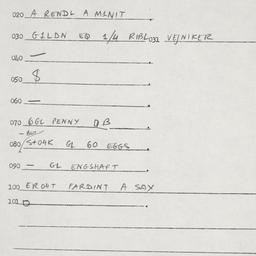 020 A RENDL A MINIT
030 GILDN EQ 1/4 RIBL 032 VEJNIKER
040 —
050 $
060 —
070 6GL PENNY DB
080 STO4K GL 60 EGGS
090 — GL ENGSHAFT
100 EROHT FARDINT A SAX
101 O